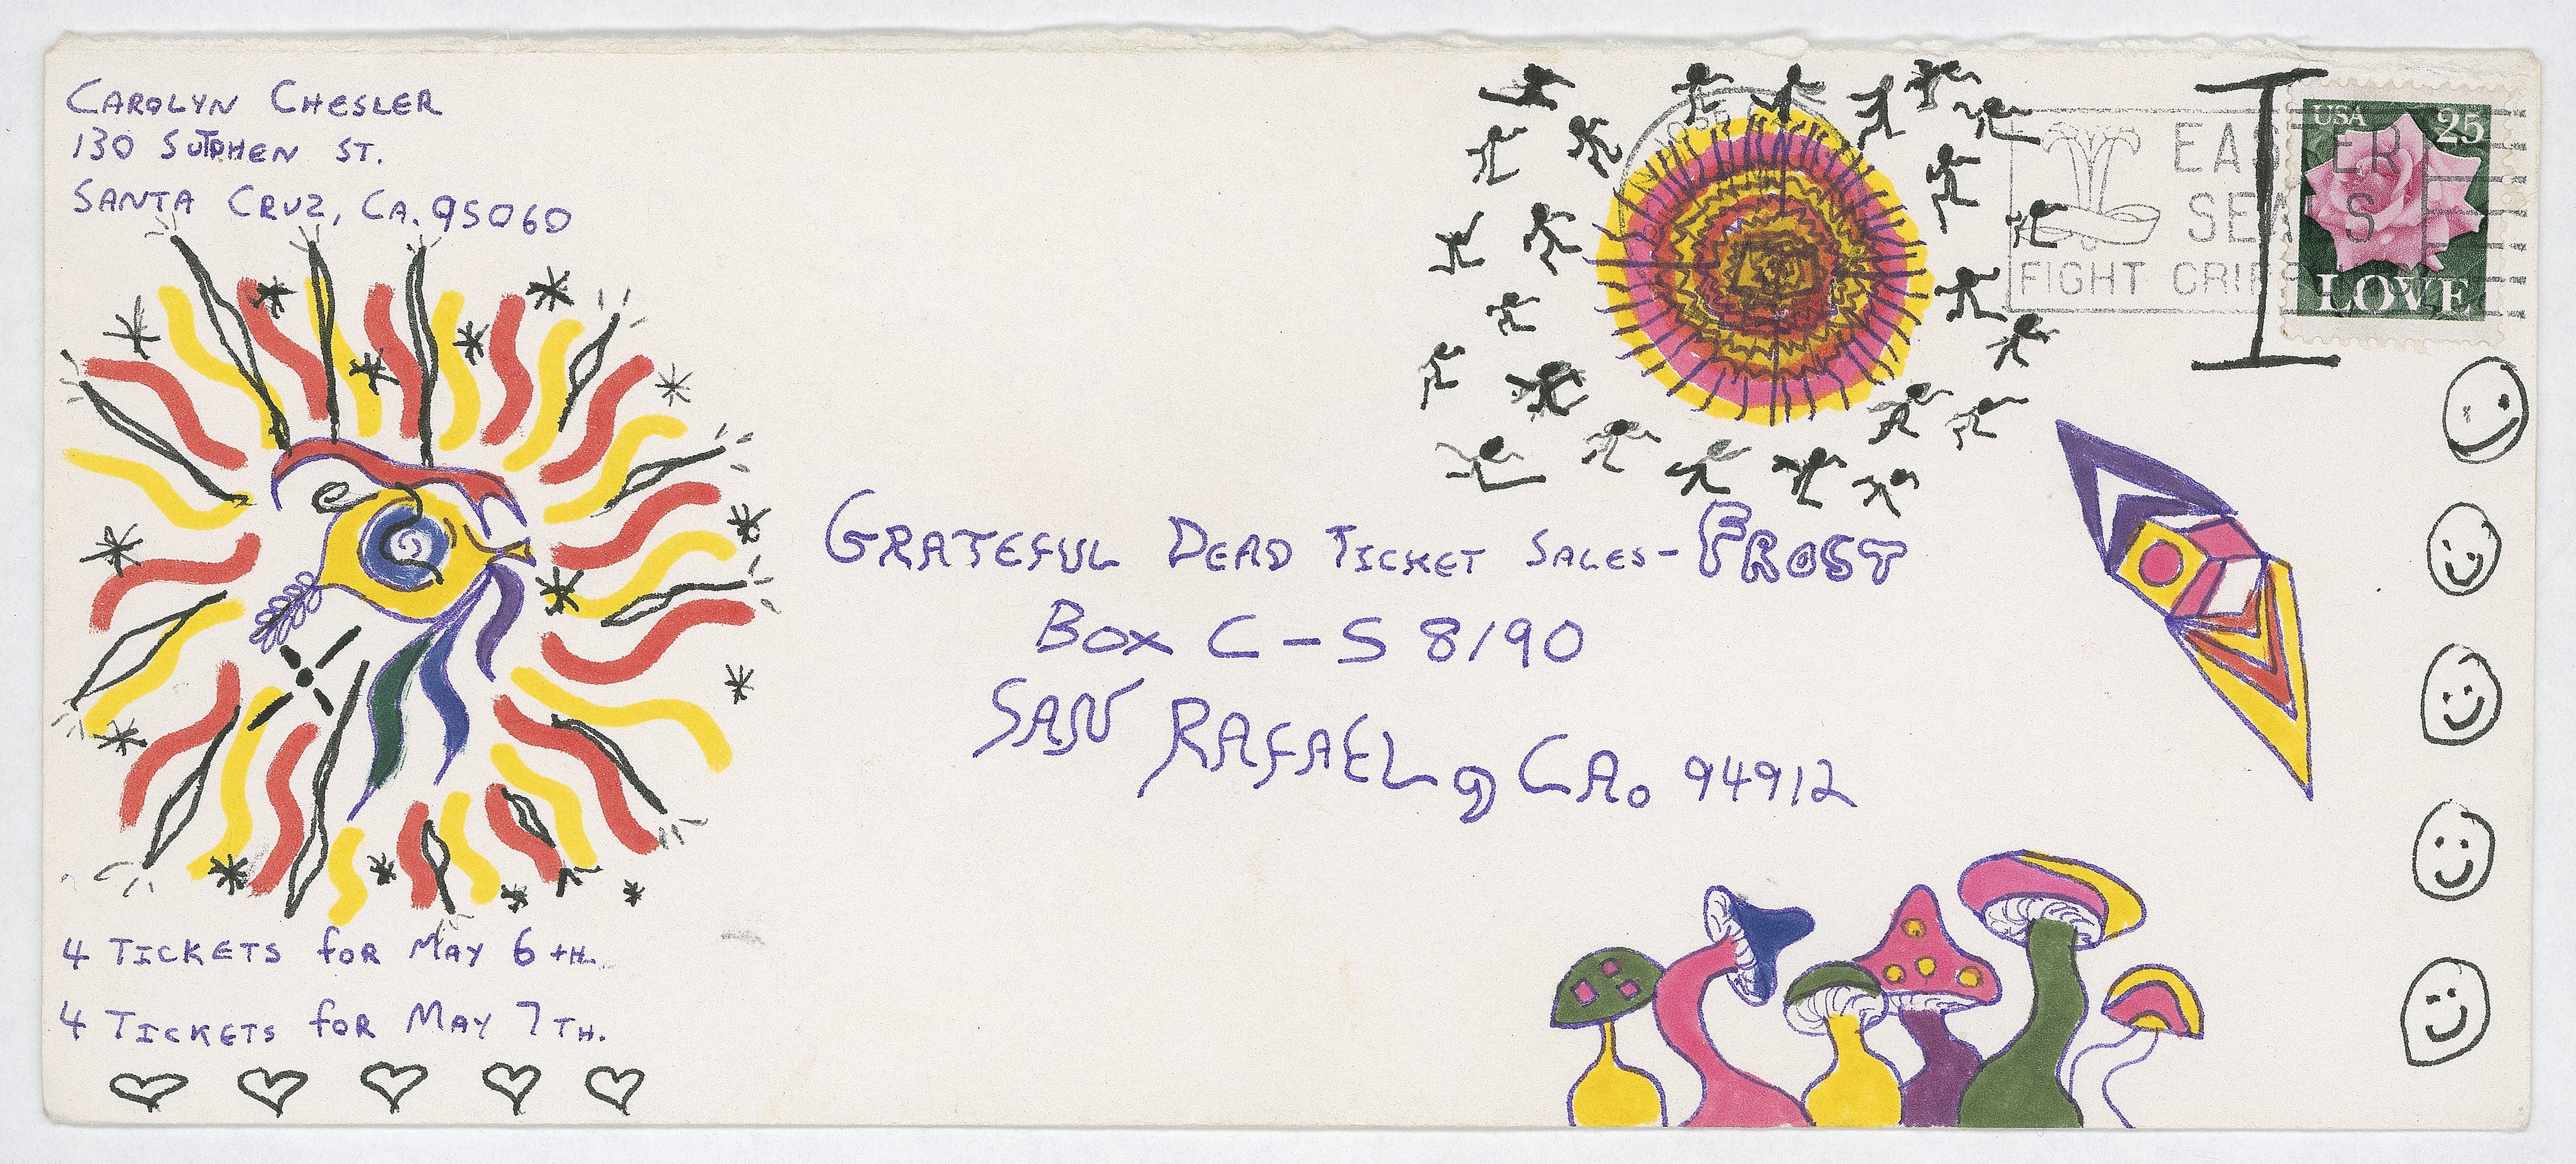 CAROLYN CHESLER
130 SUTPHEN ST.
SANTA CRUZ, CA. 95060
I
USA 25
LOVE
EASTER
SEALS
FIGHT
GRATEFUL DEAD TICKET SALES - FROST
BOX C-S 8190
SAN RAFAEL, CA. 94912
4 TICKETS for MAY 6TH.
4 TICKETS for MAY 7TH.